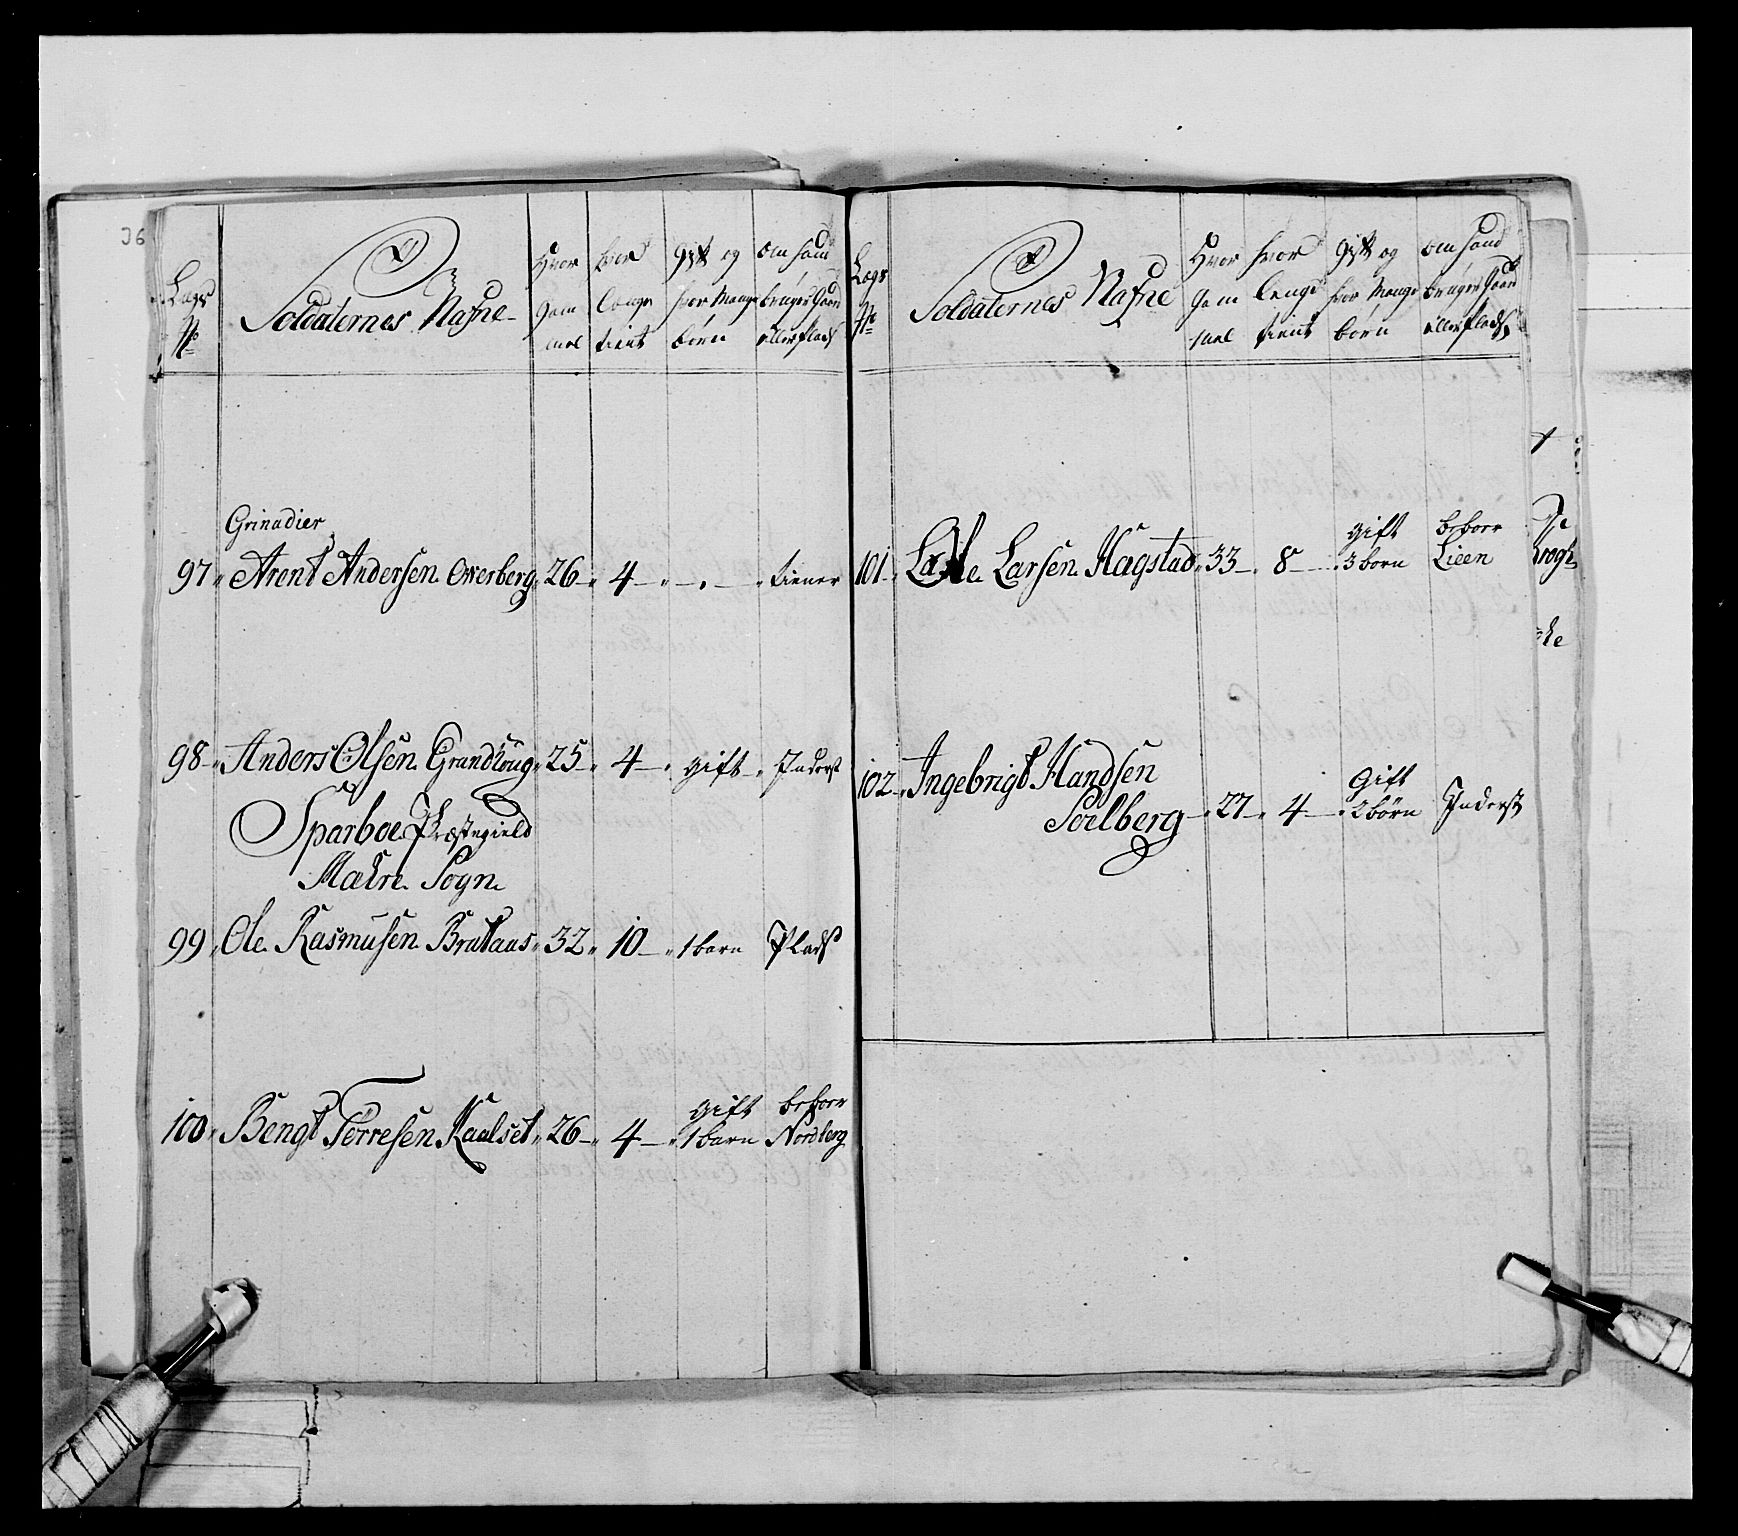 36
Lægs No
Soldaternes Nafne
Hvor gammel
hvor lenge tient
Gift og hvor Mange børn
Om hand bruger Gaard eller Plads
Grinadier
97 Arent Andersen Owerberg 26 4 tiener
98 Anders Olsen Grandhoug 25 4 gift Inderst
Sparboe Præstegield
Mækre Sogn
99 Ole Rasmusen Brataas 32 10 1 barn Plads
100 Bengt Torresen Kaalset 26 4 gift 1 barn beboer Nordberg
Lægs No
Soldaternes Nafne
Hvor gammel
hvor lenge tient
Gift og hvor Mange børn
Om hand bruger Gaard eller Plads
101 Larsen Hagstad 33 8 gift 3 børn beboer Lieen
102 Ingebrigt Handsen
Soelberg 27 4 Gift 2 børn Inderst